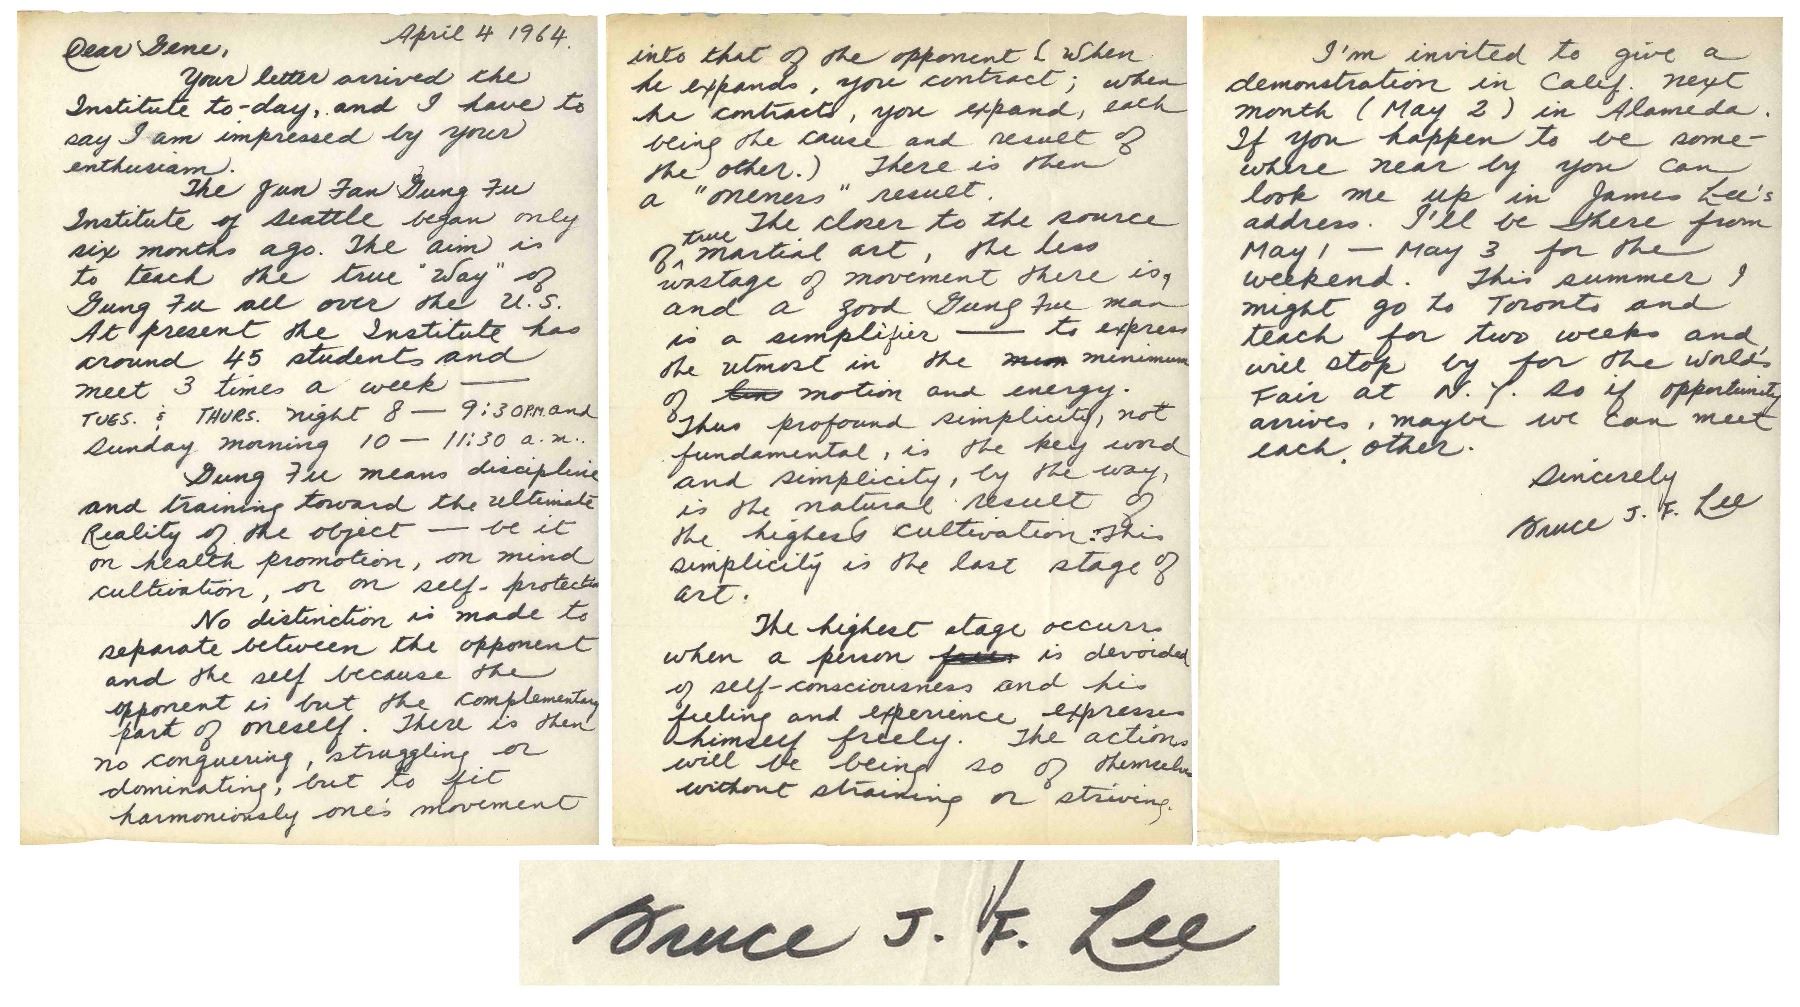 April 4 1964.
Dear Gene,
Your letter arrived the
Institute to-day, and I have to
say I am impressed by your
enthusiasm.
The Jun Fan Gung Fu
Institute of Seattle began only
six months ago. The aim is
to teach the true "Way" of
Gung Fu all over the U.S.
At present the Institute has
around 45 students and
meet 3 times a week —
TUES. & THURS. night 8 — 9:30 P.M. and
Sunday morning 10 — 11:30 a.m..
Gung Fu means discipline
and training toward the ultimate
Reality of the object — be it
on health promotion, on mind
cultivation, or on self-protection
No distinction is made to
separate between the opponent
and the self because the
opponent is but the complementary
part of oneself. There is then
no conquering, struggling or
dominating, but to fit
harmoniously one's movement
into that of the opponent ( When
he expands, you contract; when
he contracts, you expand, each
being the cause and result of
the other.) There is then
a "oneness" result.
The closer to the source
of true martial art, the less
wastage of movement there is,
and a good Gung Fu man
is a simplifier — to express
the utmost in the minimum
of motion and energy.
Thus profound simplicity, not
fundamental, is the key word
and simplicity, by the way,
is the natural result of
the highest cultivation. This
simplicity is the last stage of
art.
The highest stage occurs
when a person is devoided
of self-consciousness and his
feeling and experience expresses
himself freely. The actions
will be being so of themselves
without straining or striving.
I'm invited to give a
demonstration in Calif. next
month (May 2) in Alameda.
If you happen to be some-
where near by you can
look me up in James Lee's
address. I'll be there from
May 1 — May 3 for the
weekend. This summer I
might go to Toronto and
teach for two weeks and
will stop by for the World's
Fair at N.Y. so if opportunity
arrives, maybe we can meet
each other.
Sincerely
Bruce J. F. Lee
Bruce J. F. Lee